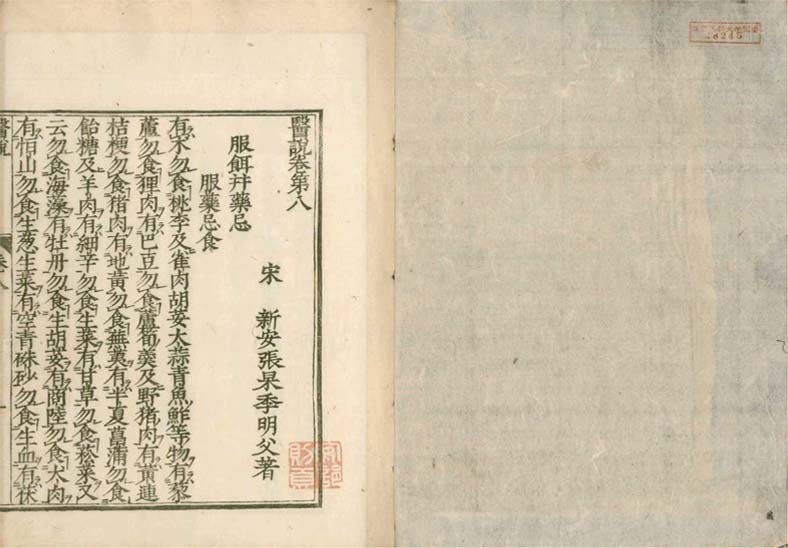 醫說卷第八
宋　新安張杲季明父著
服餌并藥忌
服藥忌食
有朮勿食桃李及雀肉胡荽大蒜青魚鮓等物有藜
蘆勿食狸肉有巴豆勿食蘆筍羹及野猪肉有黃連
桔梗勿食猪肉有地黃勿食蕪荑有半夏菖蒲勿食
飴糖及羊肉有細辛勿食生菜有甘草勿食菘菜又
云勿食海藻有牡丹勿食生胡荽有商陸勿食犬肉
有恒山勿食生葱生菜有空青硃砂勿食生血有茯
醫說
卷八
一
28245